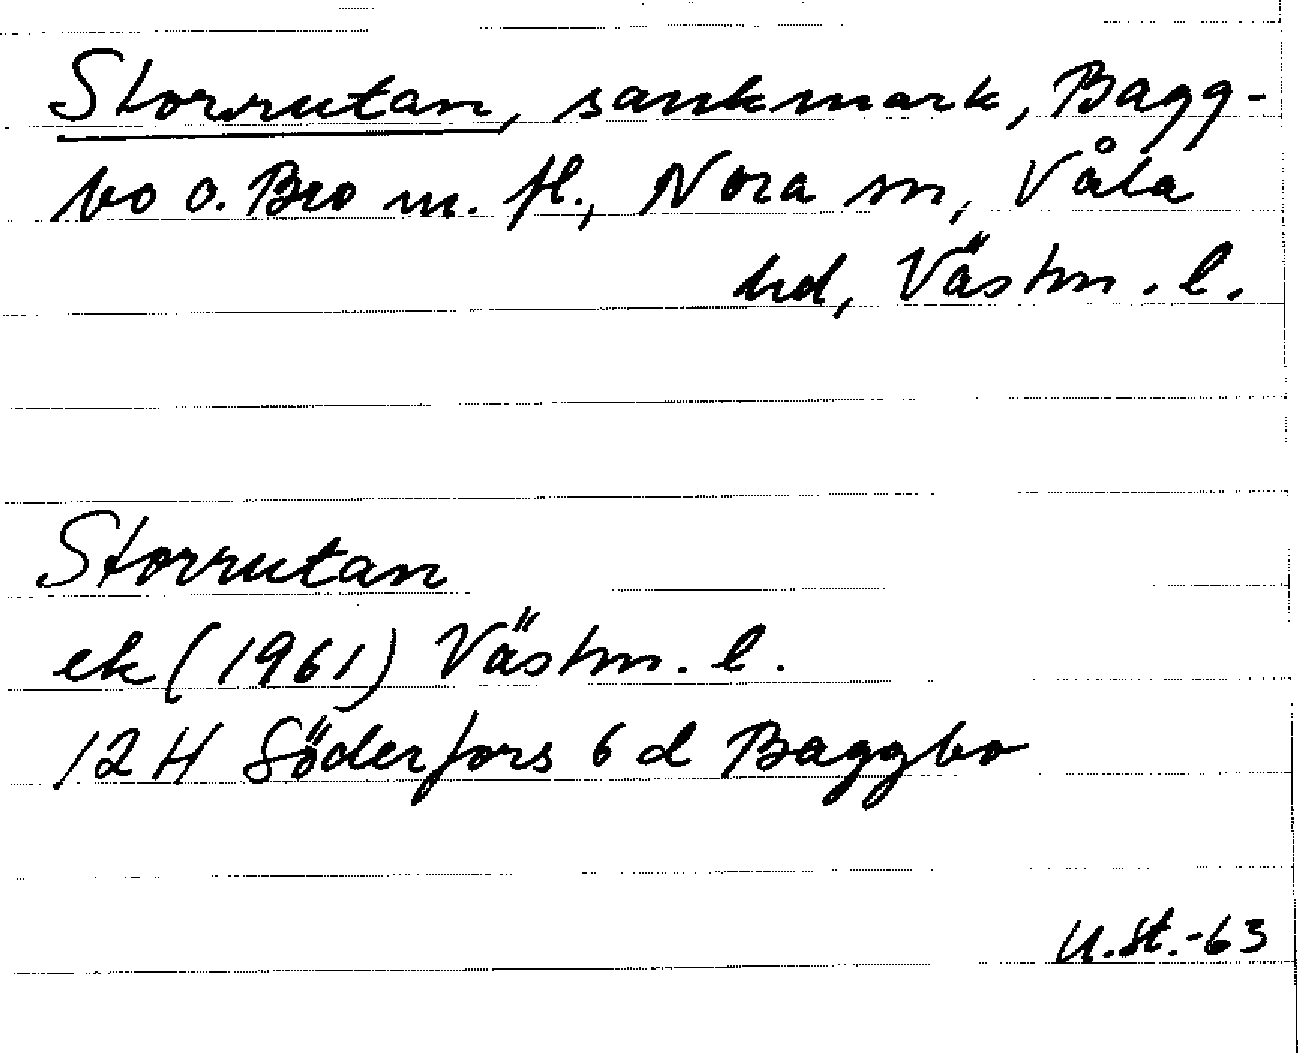 Storrutan, sankmark, Bagg-
bo o. Bro m. fl., Nora sn, Våla
hd, Västm. l.
Storrutan
ek (1961) Västm. l.
12 H Söderfors 6 d Baggbo
U.St.-63